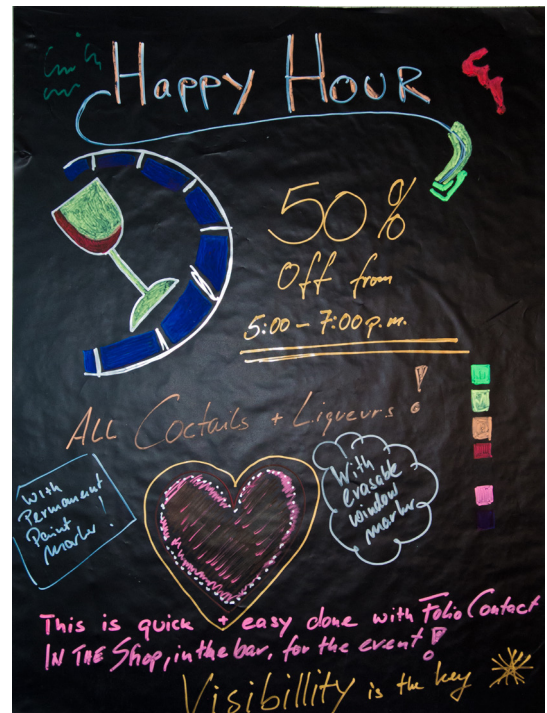 Happy Hour
50%
Off from
5:00 – 7:00 p.m.
ALL Coctails + Liqueurs !
With
Permanent
Paint
marker!
With
erasable
window
marker
This is quick + easy done with Folio Contact
IN THE Shop, in the bar, for the event!
Visibillity is the key